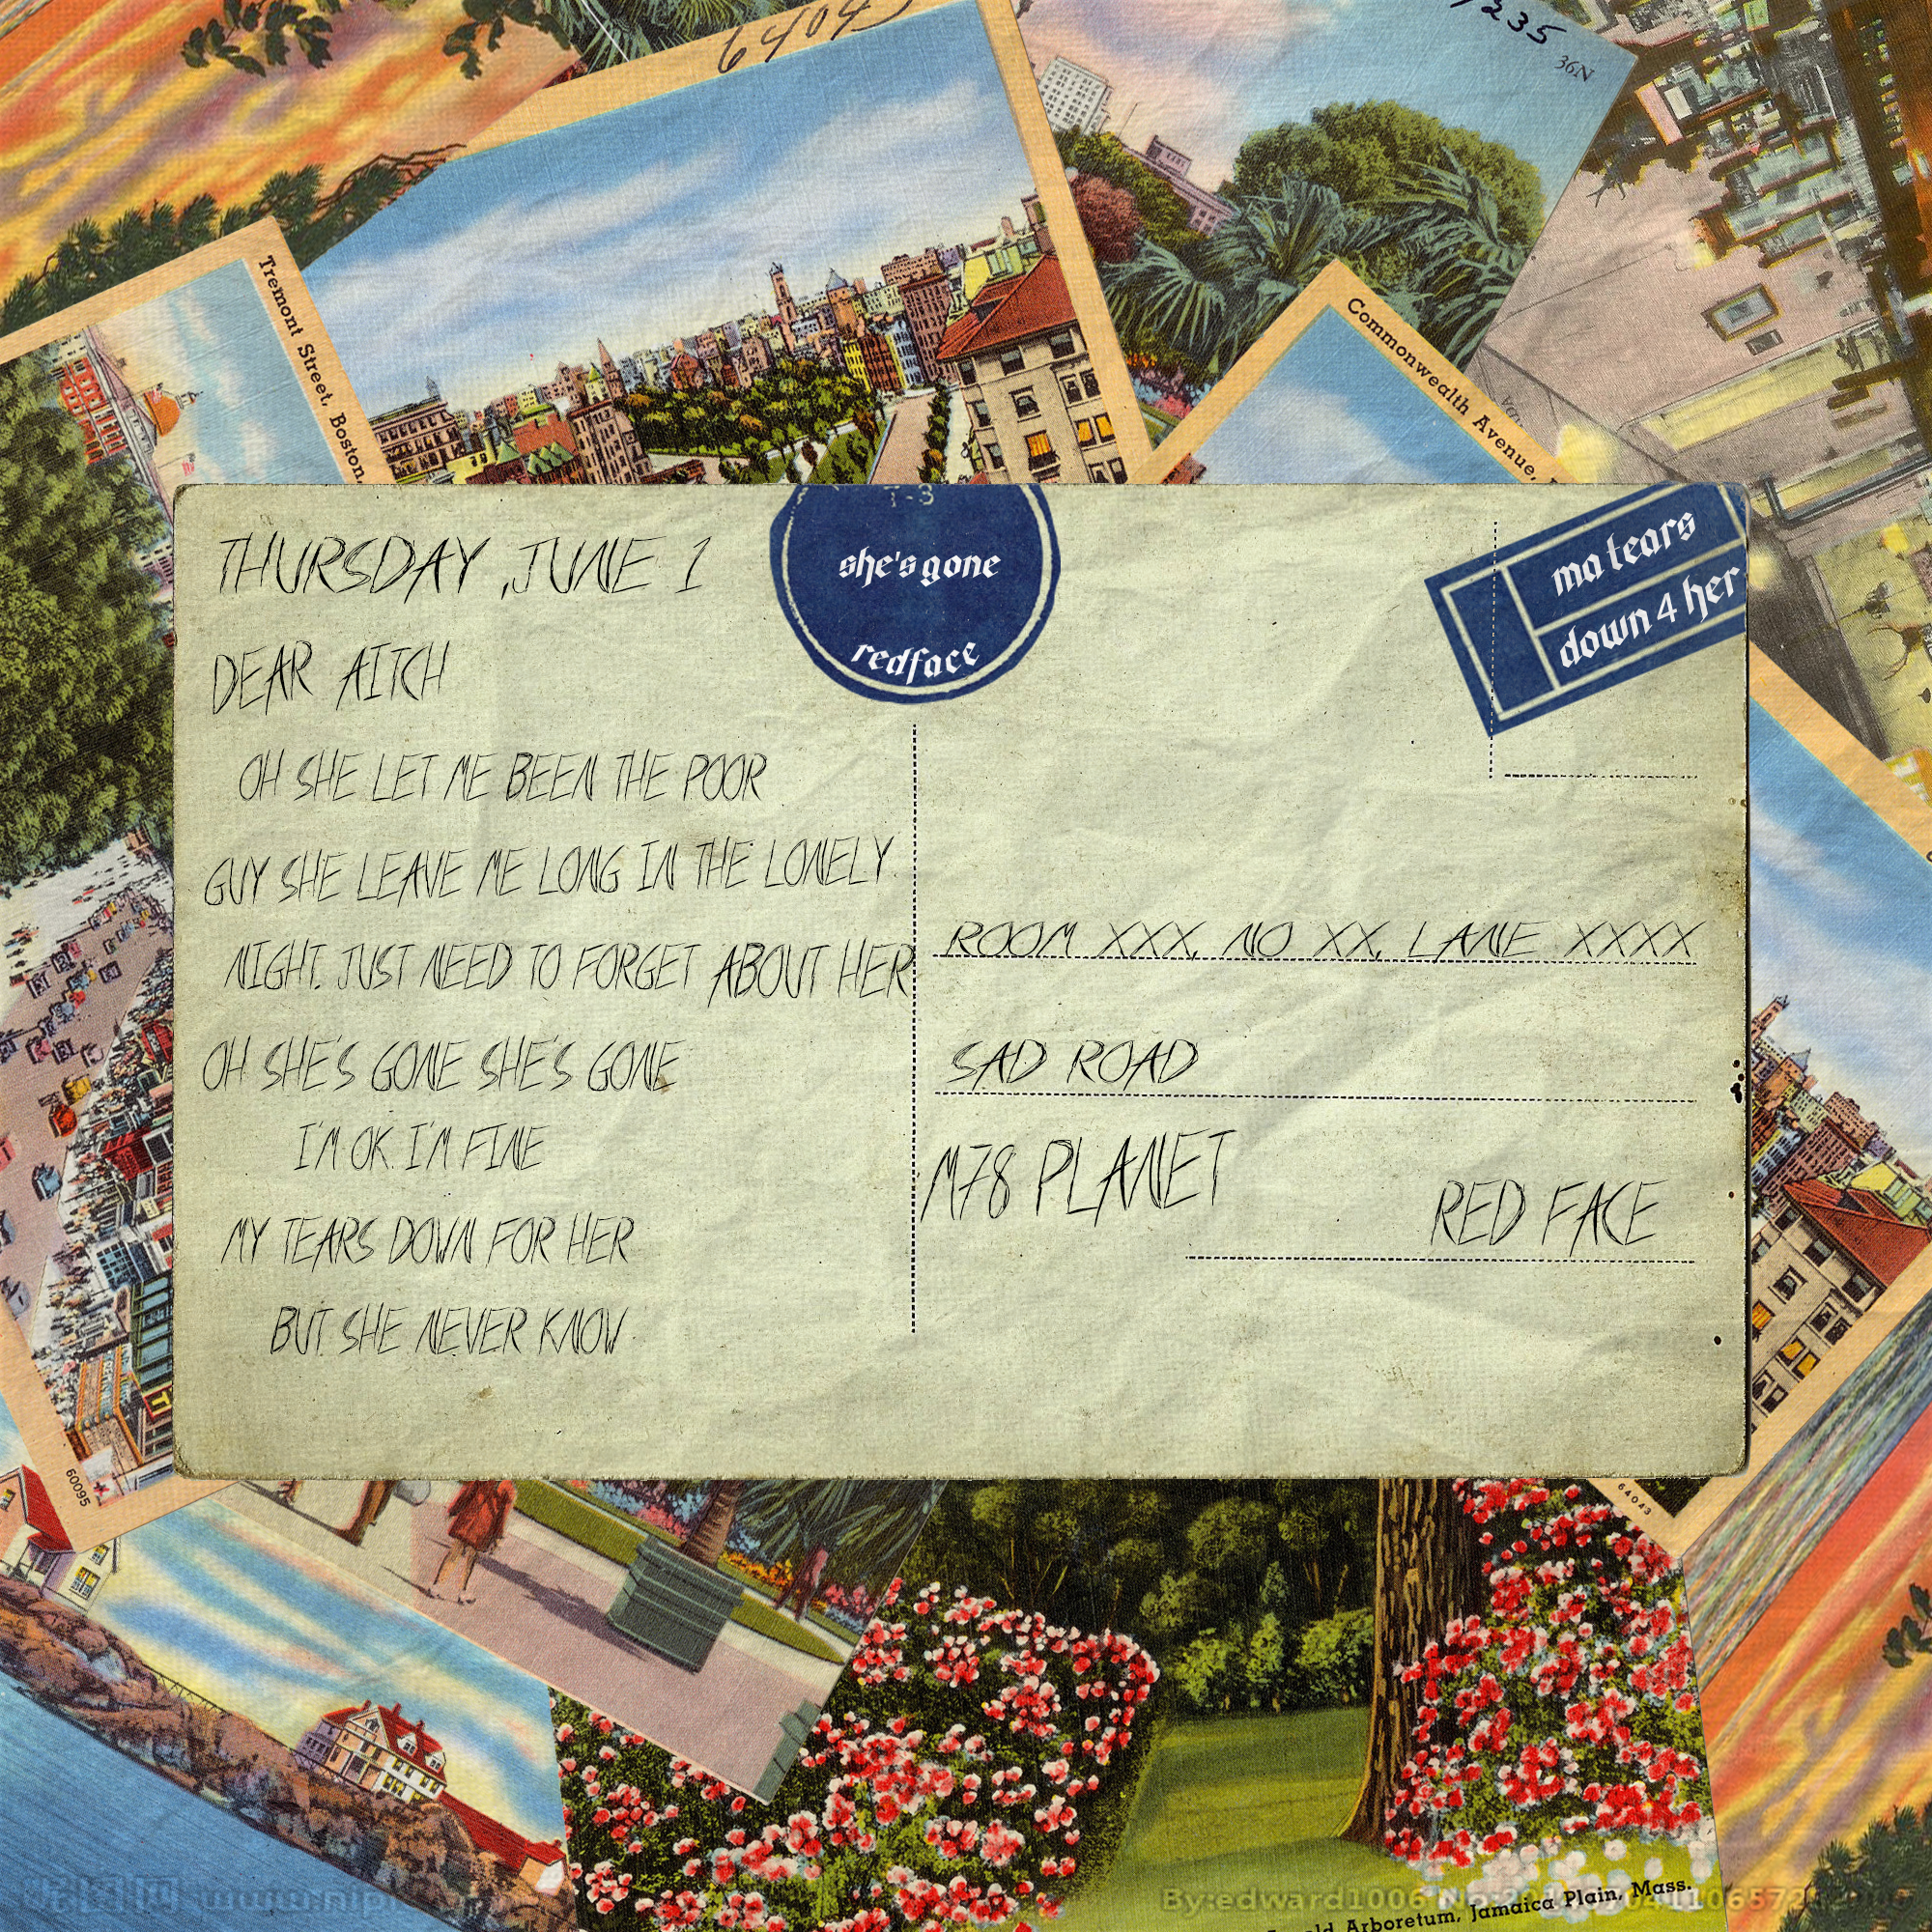 6404
235
36N
Tremont Street, Boston,
Commonwealth Avenue,
THURSDAY ,JUNE 1
she's gone
redface
ma tears
down 4 her
DEAR AITCH
OH SHE LET ME BEEN THE POOR
GUY SHE LEAVE ME LONG IN THE LONELY
NIGHT. JUST NEED TO FORGET ABOUT HER
OH SHE'S GONE SHE'S GONE
I'M OK. I'M FINE
MY TEARS DOWN FOR HER
BUT SHE NEVER KNOW
ROOM XXX, NO XX, LANE XXXX
SAD ROAD
M78 PLANET
RED FACE
60095
64043
Arboretum, Jamaica Plain, Mass.
By:edward1006